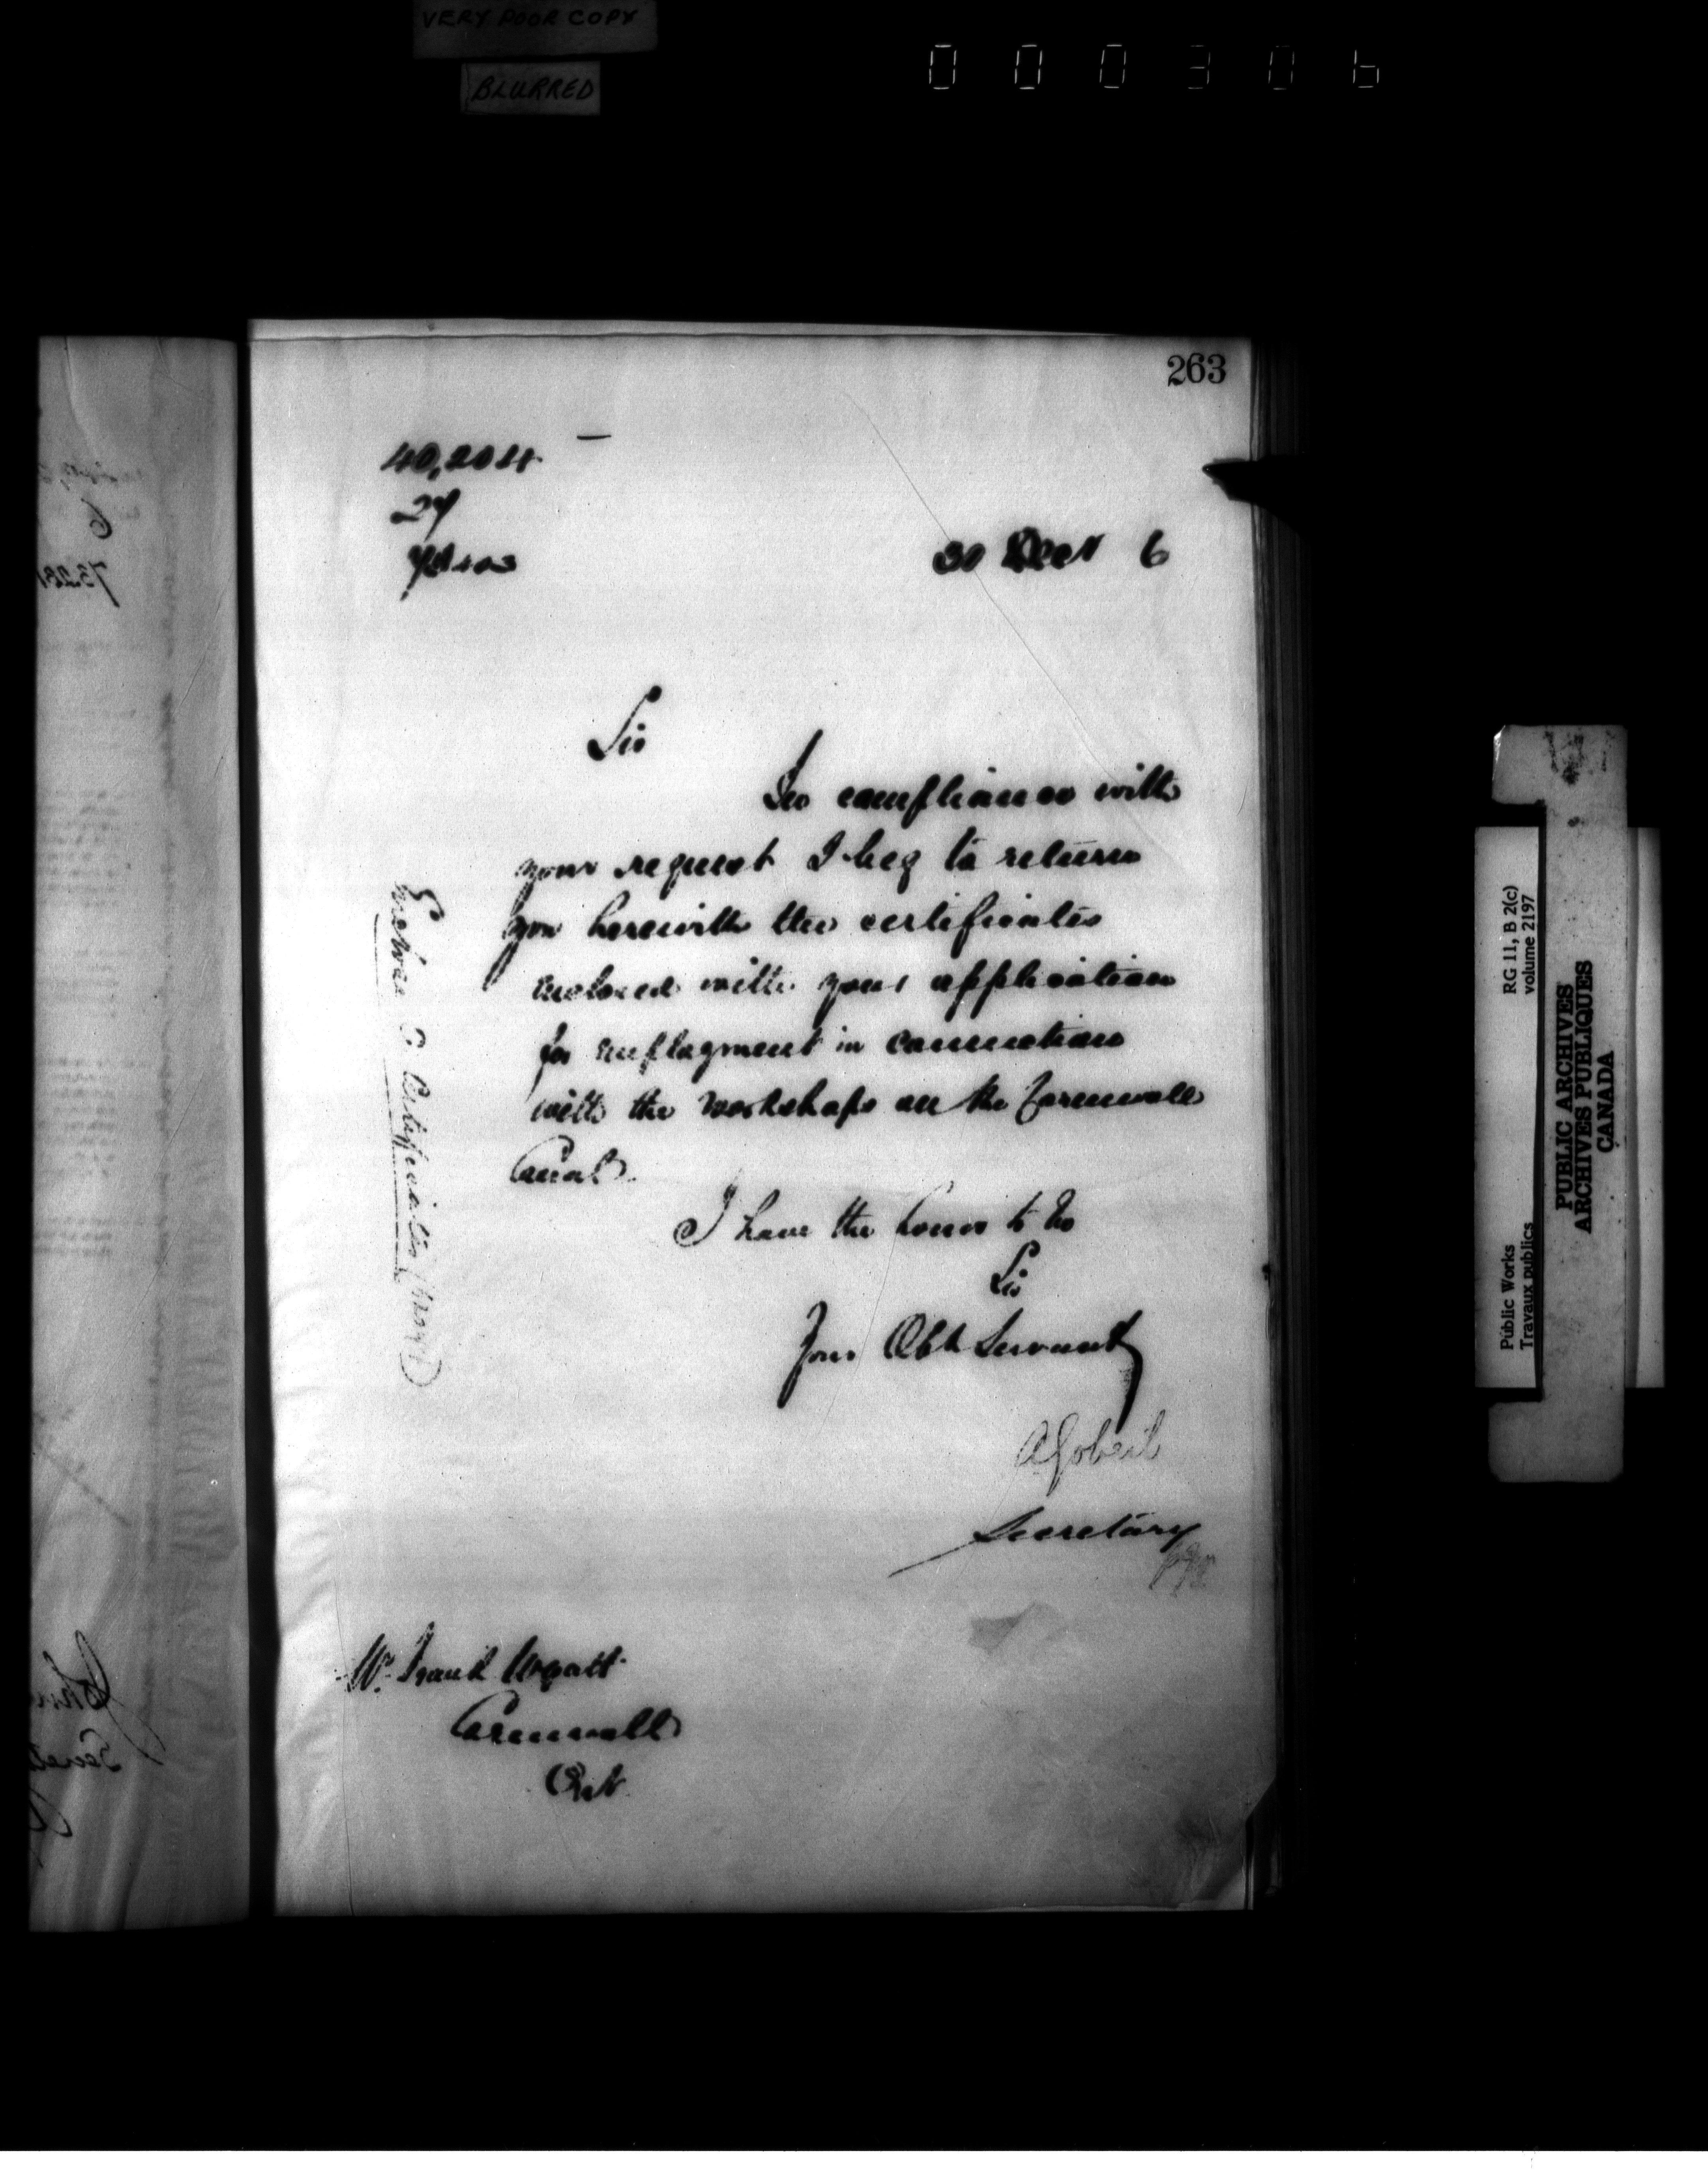 VERY POOR COPY
BLURRED
000306
263
40,204
27
30 Decr 6
Sir
In compliance with
your request I beg to return
you herewith the certificates
enclosed with your application
for employment in connection
with the workshops on the Cornwall
Canal.
I have the honor to be
Sir
Your Obt Servant
A Gobeil
Secretary
Mr. Frank Wyatt
Cornwall
Ont
Certificates
RG 11, B 2(c)
volume 2197
Public Works
Travaux publics
PUBLIC ARCHIVES
ARCHIVES PUBLIQUES
CANADA